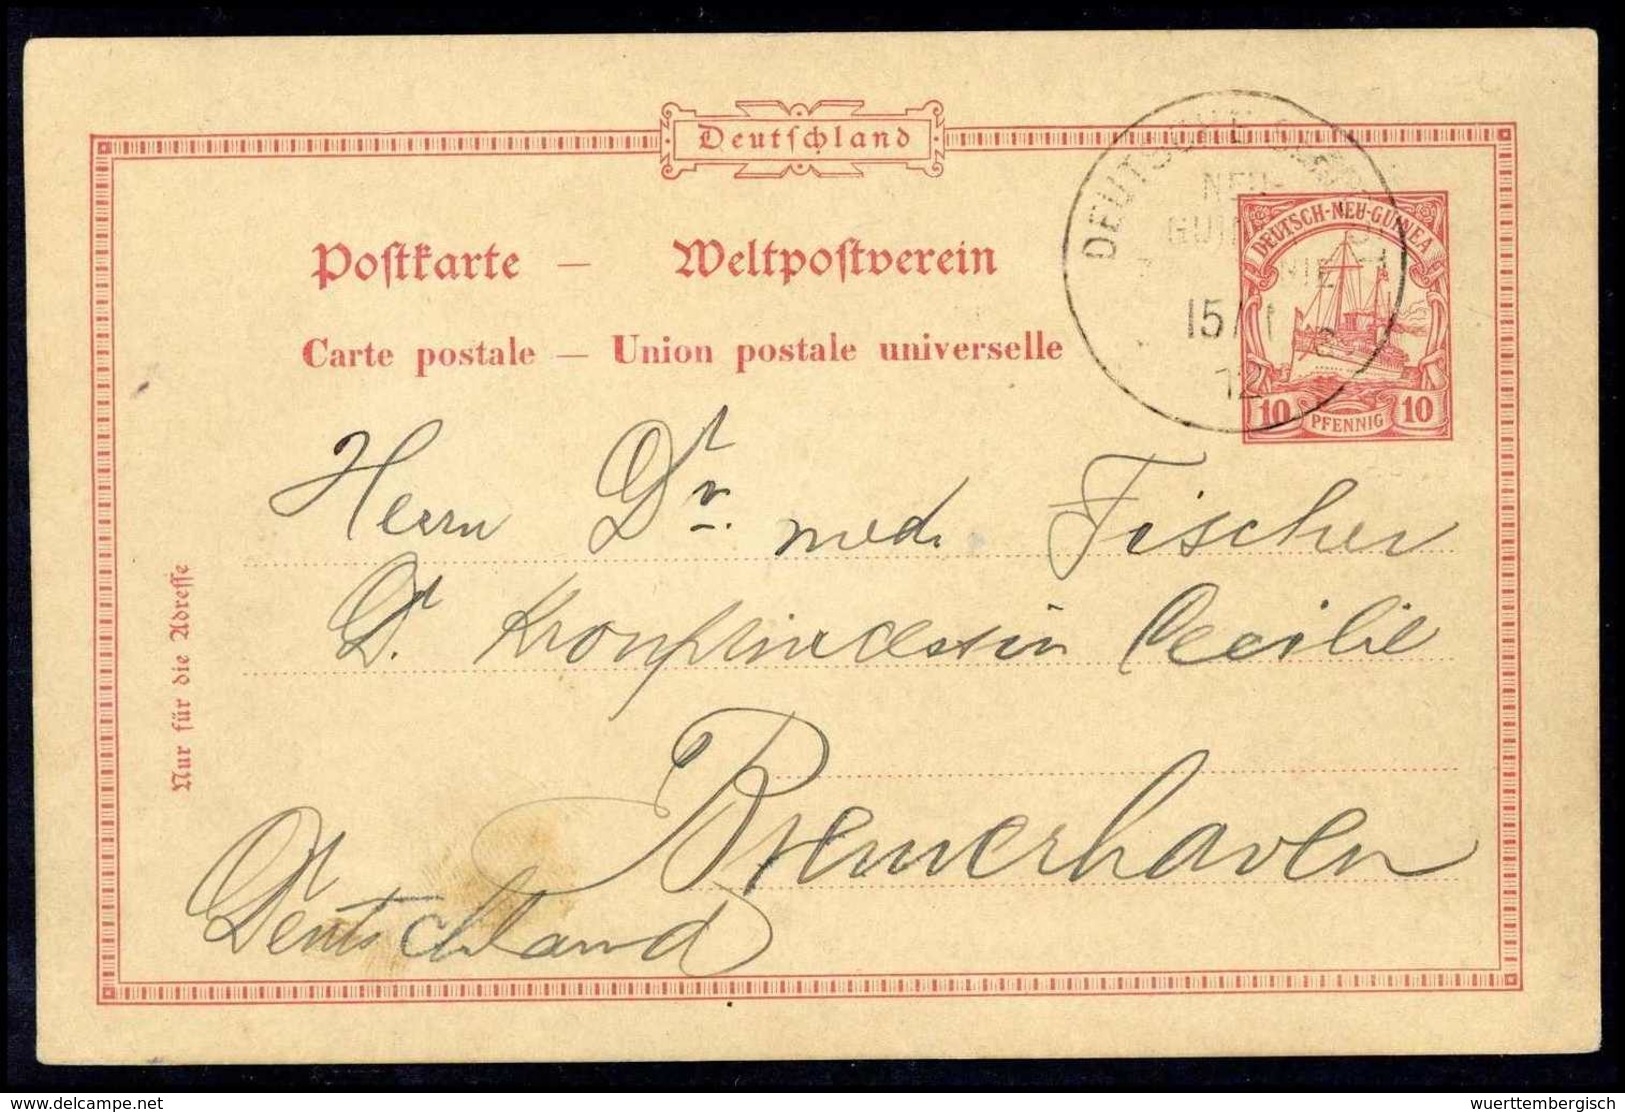 Deutschland
Postkarte — Weltpostverein
Carte postale — Union postale universelle
DEUTSCHE SEEPOST
NEU-
15/1
12
DEUTSCH-NEU-GUINEA
10 PFENNIG 10
Herrn Dr. med. Fischer
D. Kronprincessin Cecilie
Bremerhaven
Deutschland
Nur für die Adresse
www.delcampe.net
wuerttembergisch